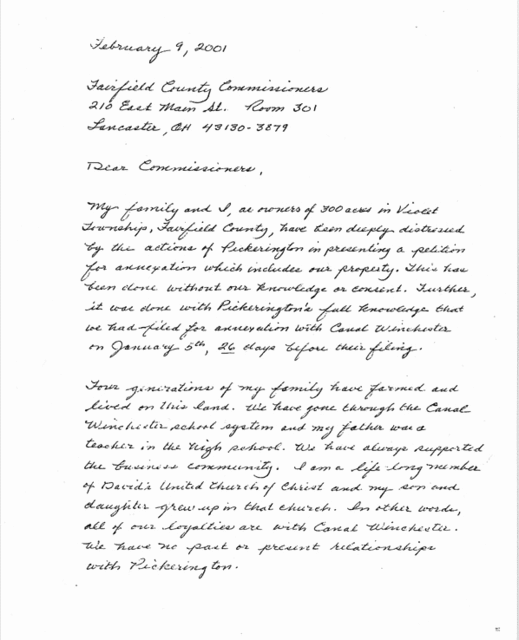 February 9, 2001
Fairfield County Commissioners
210 East Main St. Room 301
Lancaster, OH 43130-3879
Dear Commissioners,
My family and I, as owners of 300 acres in Violet
Township, Fairfield County, have been deeply distressed
by the actions of Pickerington in presenting a petition
for annexation which includes our property. This has
been done without our knowledge or consent. Further,
it was done with Pickerington's full knowledge that
we had filed for annexation with Canal Winchester
on January 5th, 26 days before their filing.
Four generations of my family have farmed and
lived on this land. We have gone through the Canal
Winchester school system and my father was a
teacher in the high school. We have always supported
the business community. I am a life long member
of David's United Church of Christ and my son and
daughter grew up in that church. In other words,
all of our loyalties are with Canal Winchester.
We have no past or present relationships
with Pickerington.